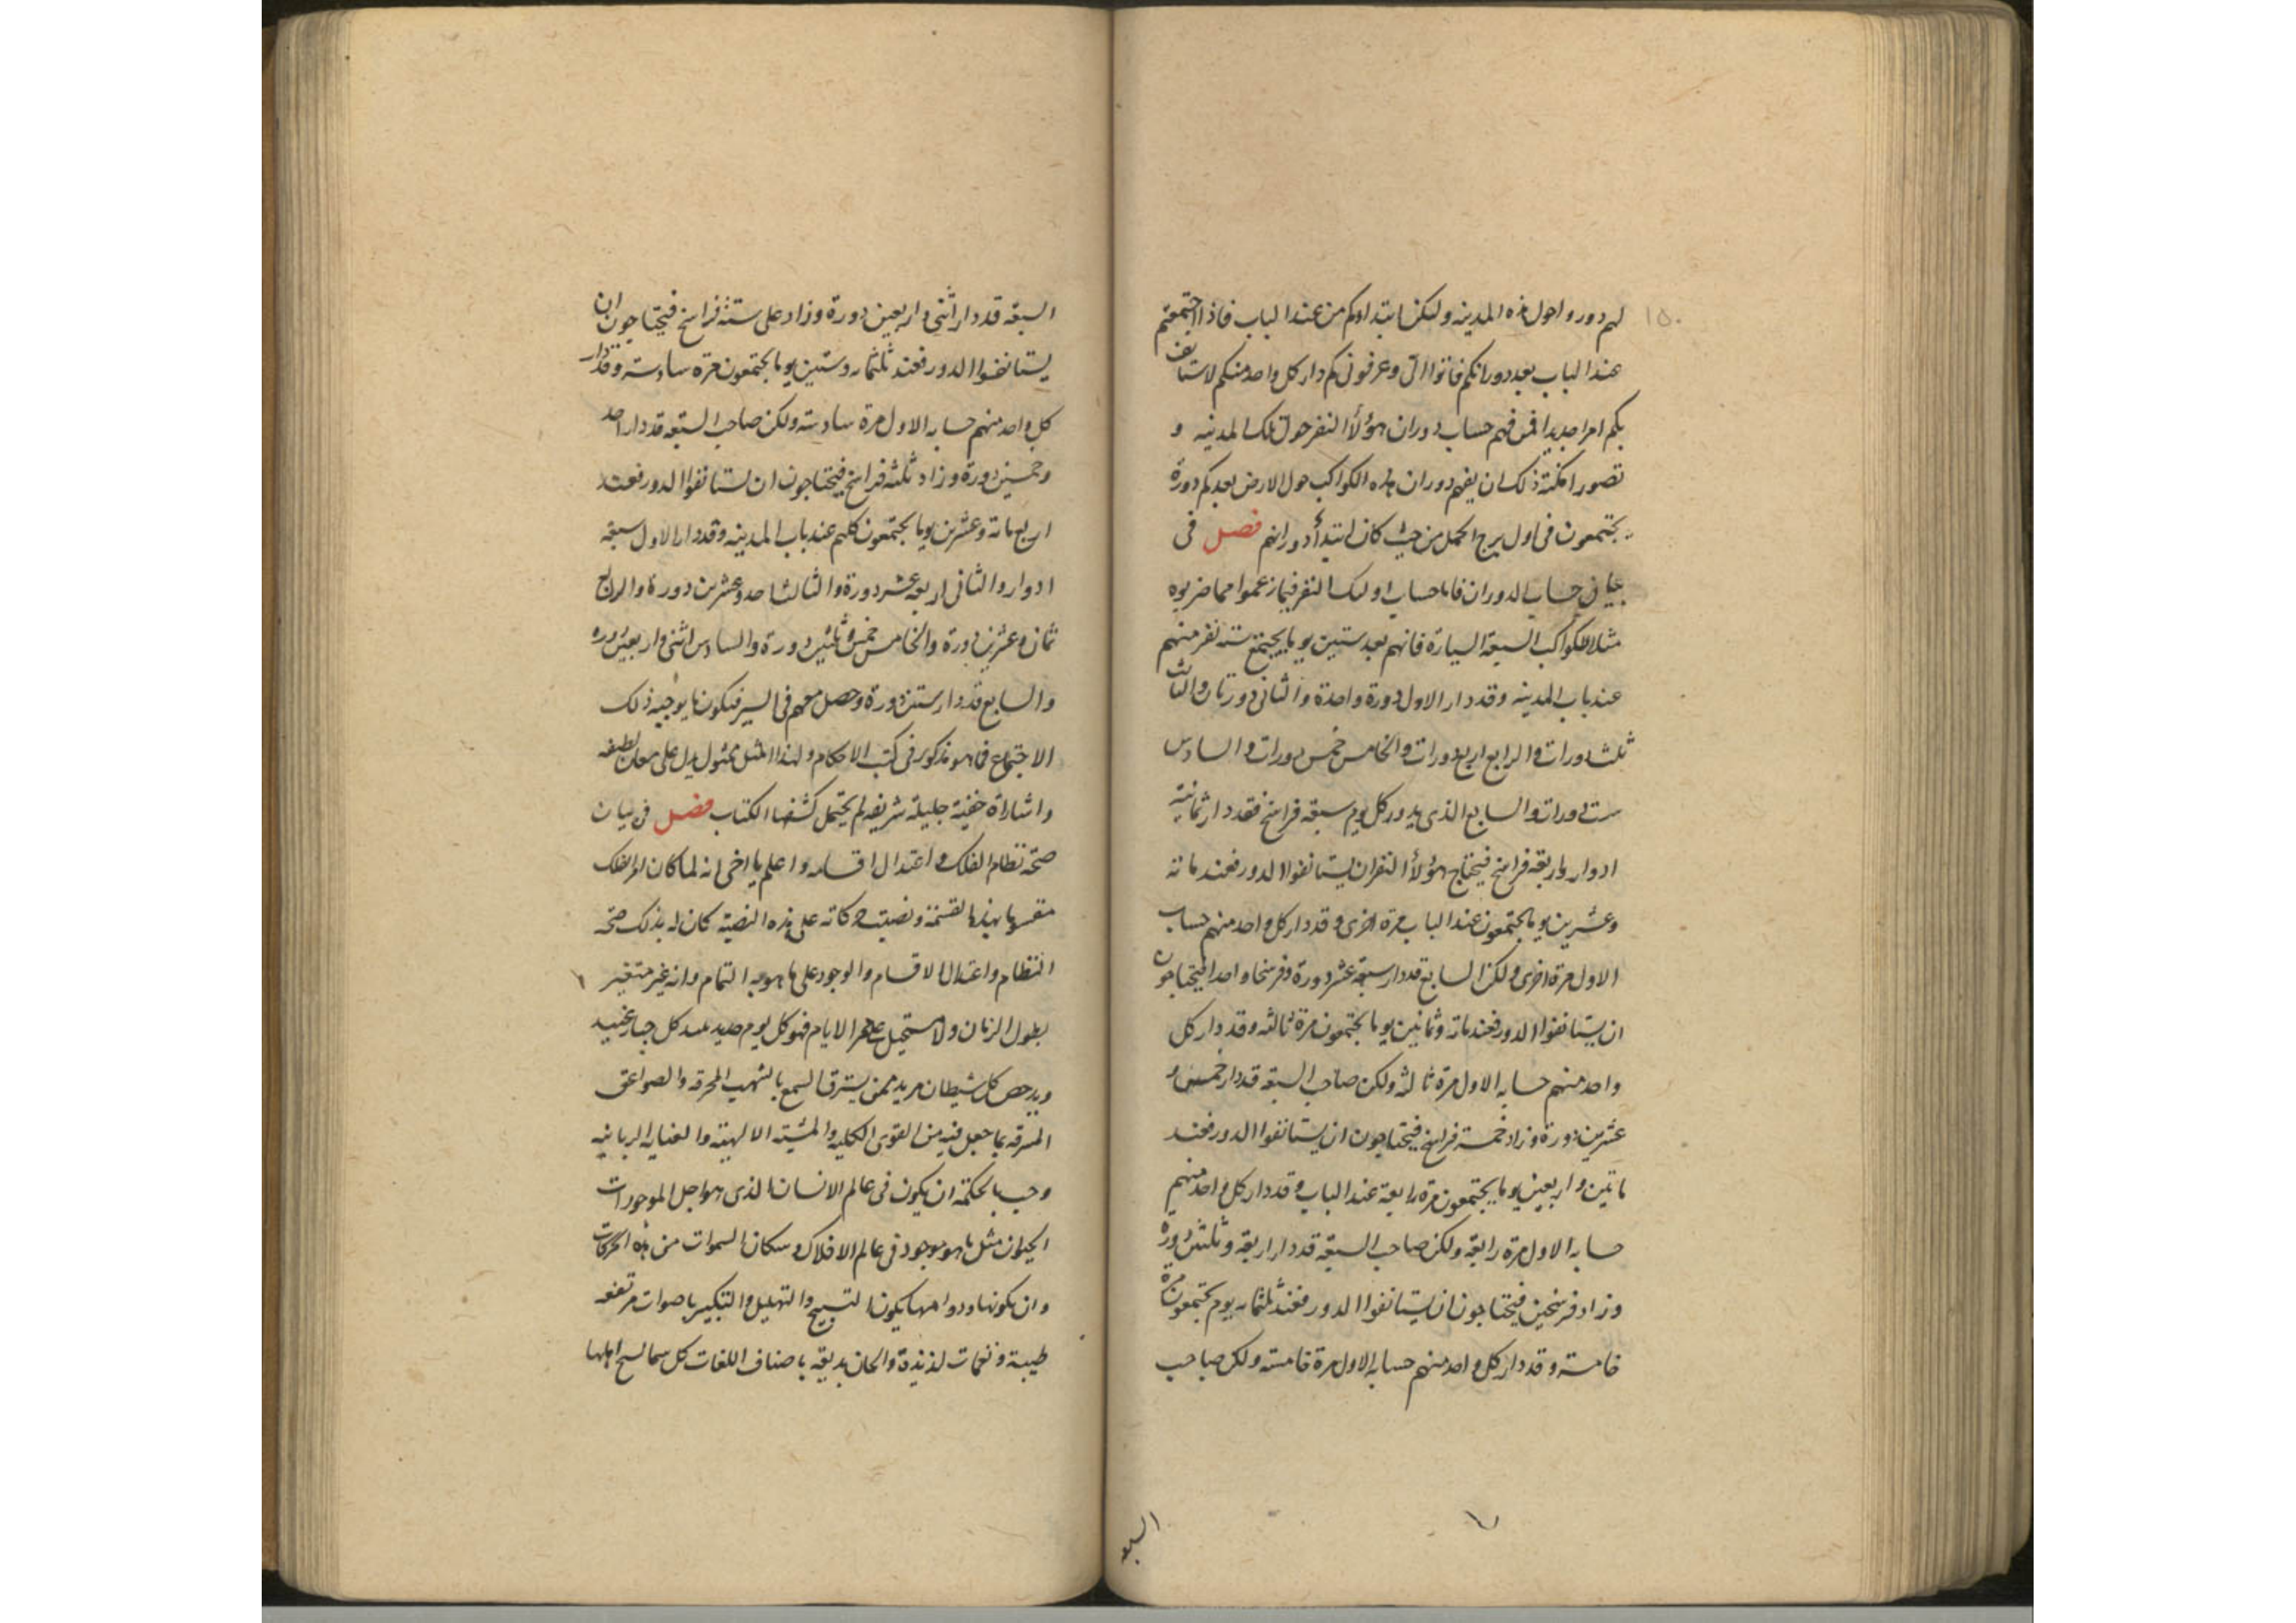 ١٥٠
لهم دوروا حول هذه المدينه وليكن ابتداوكم من عند الباب فاذا اجتمعتم
عند الباب بعد دورانكم فاتوا الى وعرفونى كم دار كل واحد منكم لاستانف
بكم امرا جديدا فمن فهم حساب دوران هؤلاء النفر حول تلك المدنيه و
تصور امكنة ذلك ان يفهم دوران هذه الكواكب حول الارض بعد كم دورة
يجتمعون فى اول برج الحمل من حيث كان ابتدأ دورانهم فصل فى
بيان حساب الدوران فاما حساب اولئك النفر فيما زعموا مما ضربوه
مثلا للكواكب السبعة السيارة فانهم بعد ستين يوما يجتمع ستة نفر منهم
عند باب المدينه وقد دار الاول دورة واحدة والثانى دورتان والثالث
ثلث دورات والرابع اربع دورات والخامس خمس دورات والسادس
ست دورات والسابع الذى يدور كل يوم سبعة فراسخ فقد دار ثمانية
ادوار واربعة فراسخ فيحتاج هؤلأ النفر ان يستانفوا الدور فعند مائة
وعشرين يوما يجتمعون عند الباب مرة اخرى وقد دار كل واحد منهم حساب
الاول مرة اخرى ولكن السابع قد دار سبعة عشر دورة وفرسخا واحدا فيحتاجون
ان يستانفوا الدور فعند مائة وثمانين يوما يجتمعون مرة ثالثه وقد دار كل
واحد منهم حسابه الاول مرة ثالثه ولكن صاحب السبعة قد دار خمس و
عشرين دورة وزاد خمسة فراسخ فيحتاجون ان يستانفوا الدور فعند
ماتين واربعين يوما يجتمعون مرة رابعة عند الباب وقد دار كل واحد منهم
حسابه الاول مرة رابعة ولكن صاحب السبعة قد دار اربعة وثلثين دورة
وزاد فرسخين فيحتاجون ان يستانفوا الدور فعند ثلثمايه يوم يجتمعون مرة
خامسة وقد دار كل واحد منهم حسابه الاول مرة خامسة ولكن صاحب
السبعه
السبعة قد دار اثنى واربعين دورة وزاد على ستة فراسخ فيحتاجون ان
يستانفوا الدور فعند ثلثمايه وستين يوما يجتمعون مرة سادسة وقد دار
كل واحد منهم حسابه الاول مرة سادسة ولكن صاحب السبعة قد دار احد
وخمسين دورة وزاد ثلثه فراسخ فيحتاجون ان يستانفوا الدور فعند
اربع مائة وعشرين يوما يجتمعون كلهم عند باب المدينه وقد دار الاول سبعة
ادوار والثانى اربعه عشر دورة والثالث احد وعشرين دورة والرابع
ثمان وعشرين دورة والخامس خمس وثلثين دورة والسادس اثنى واربعين دوره
والسابع قد دار ستين دورة وحصل معهم فى السير فيكون ما يوجبه ذلك
الاجتماع فما هو مذكور فى كتب الاحكام ولهذا المثل ممثول يدل على معان لطيفه
واشاراة خفية جليلة شريفه لم يحتمل كشفها الكتاب فصل فى بيان
صحة نظام الفلك واعتدال اقسامه واعلم يا اخى انه لما كان امر الفلك
مقسوما بهذه القسمة ونصبت حركاته على هذه النصبة كان له بذلك صحة
النظام واعتدال الاقسام والوجود على ما هو به التمام وانه غير متغير
بطول الزمان ولا مستحيل على ممر الايام فهو كل يوم جديد عند كل جبار عنيد
ويدحض كل شيطان مريد ممن يسترق السمع بالشهب المحرقه والصواعق
المسرقه بما جعل فيه من القوى الكليه والمشيته الالهيته والعنايه الربانيه
وجب بالحكمة ان يكون فى عالم الانسان الذى هو اجل الموجودات
الحيوان مثل ما هو موجود فى عالم الافلاك وسكان السموات من هذه الحركات
وان يكون التسبيح والتهليل والتكبير باصوات مرتفعه
طيبة ونغمات لذيذة والحان بديعه باصناف اللغات كل سما تسبح اهلها